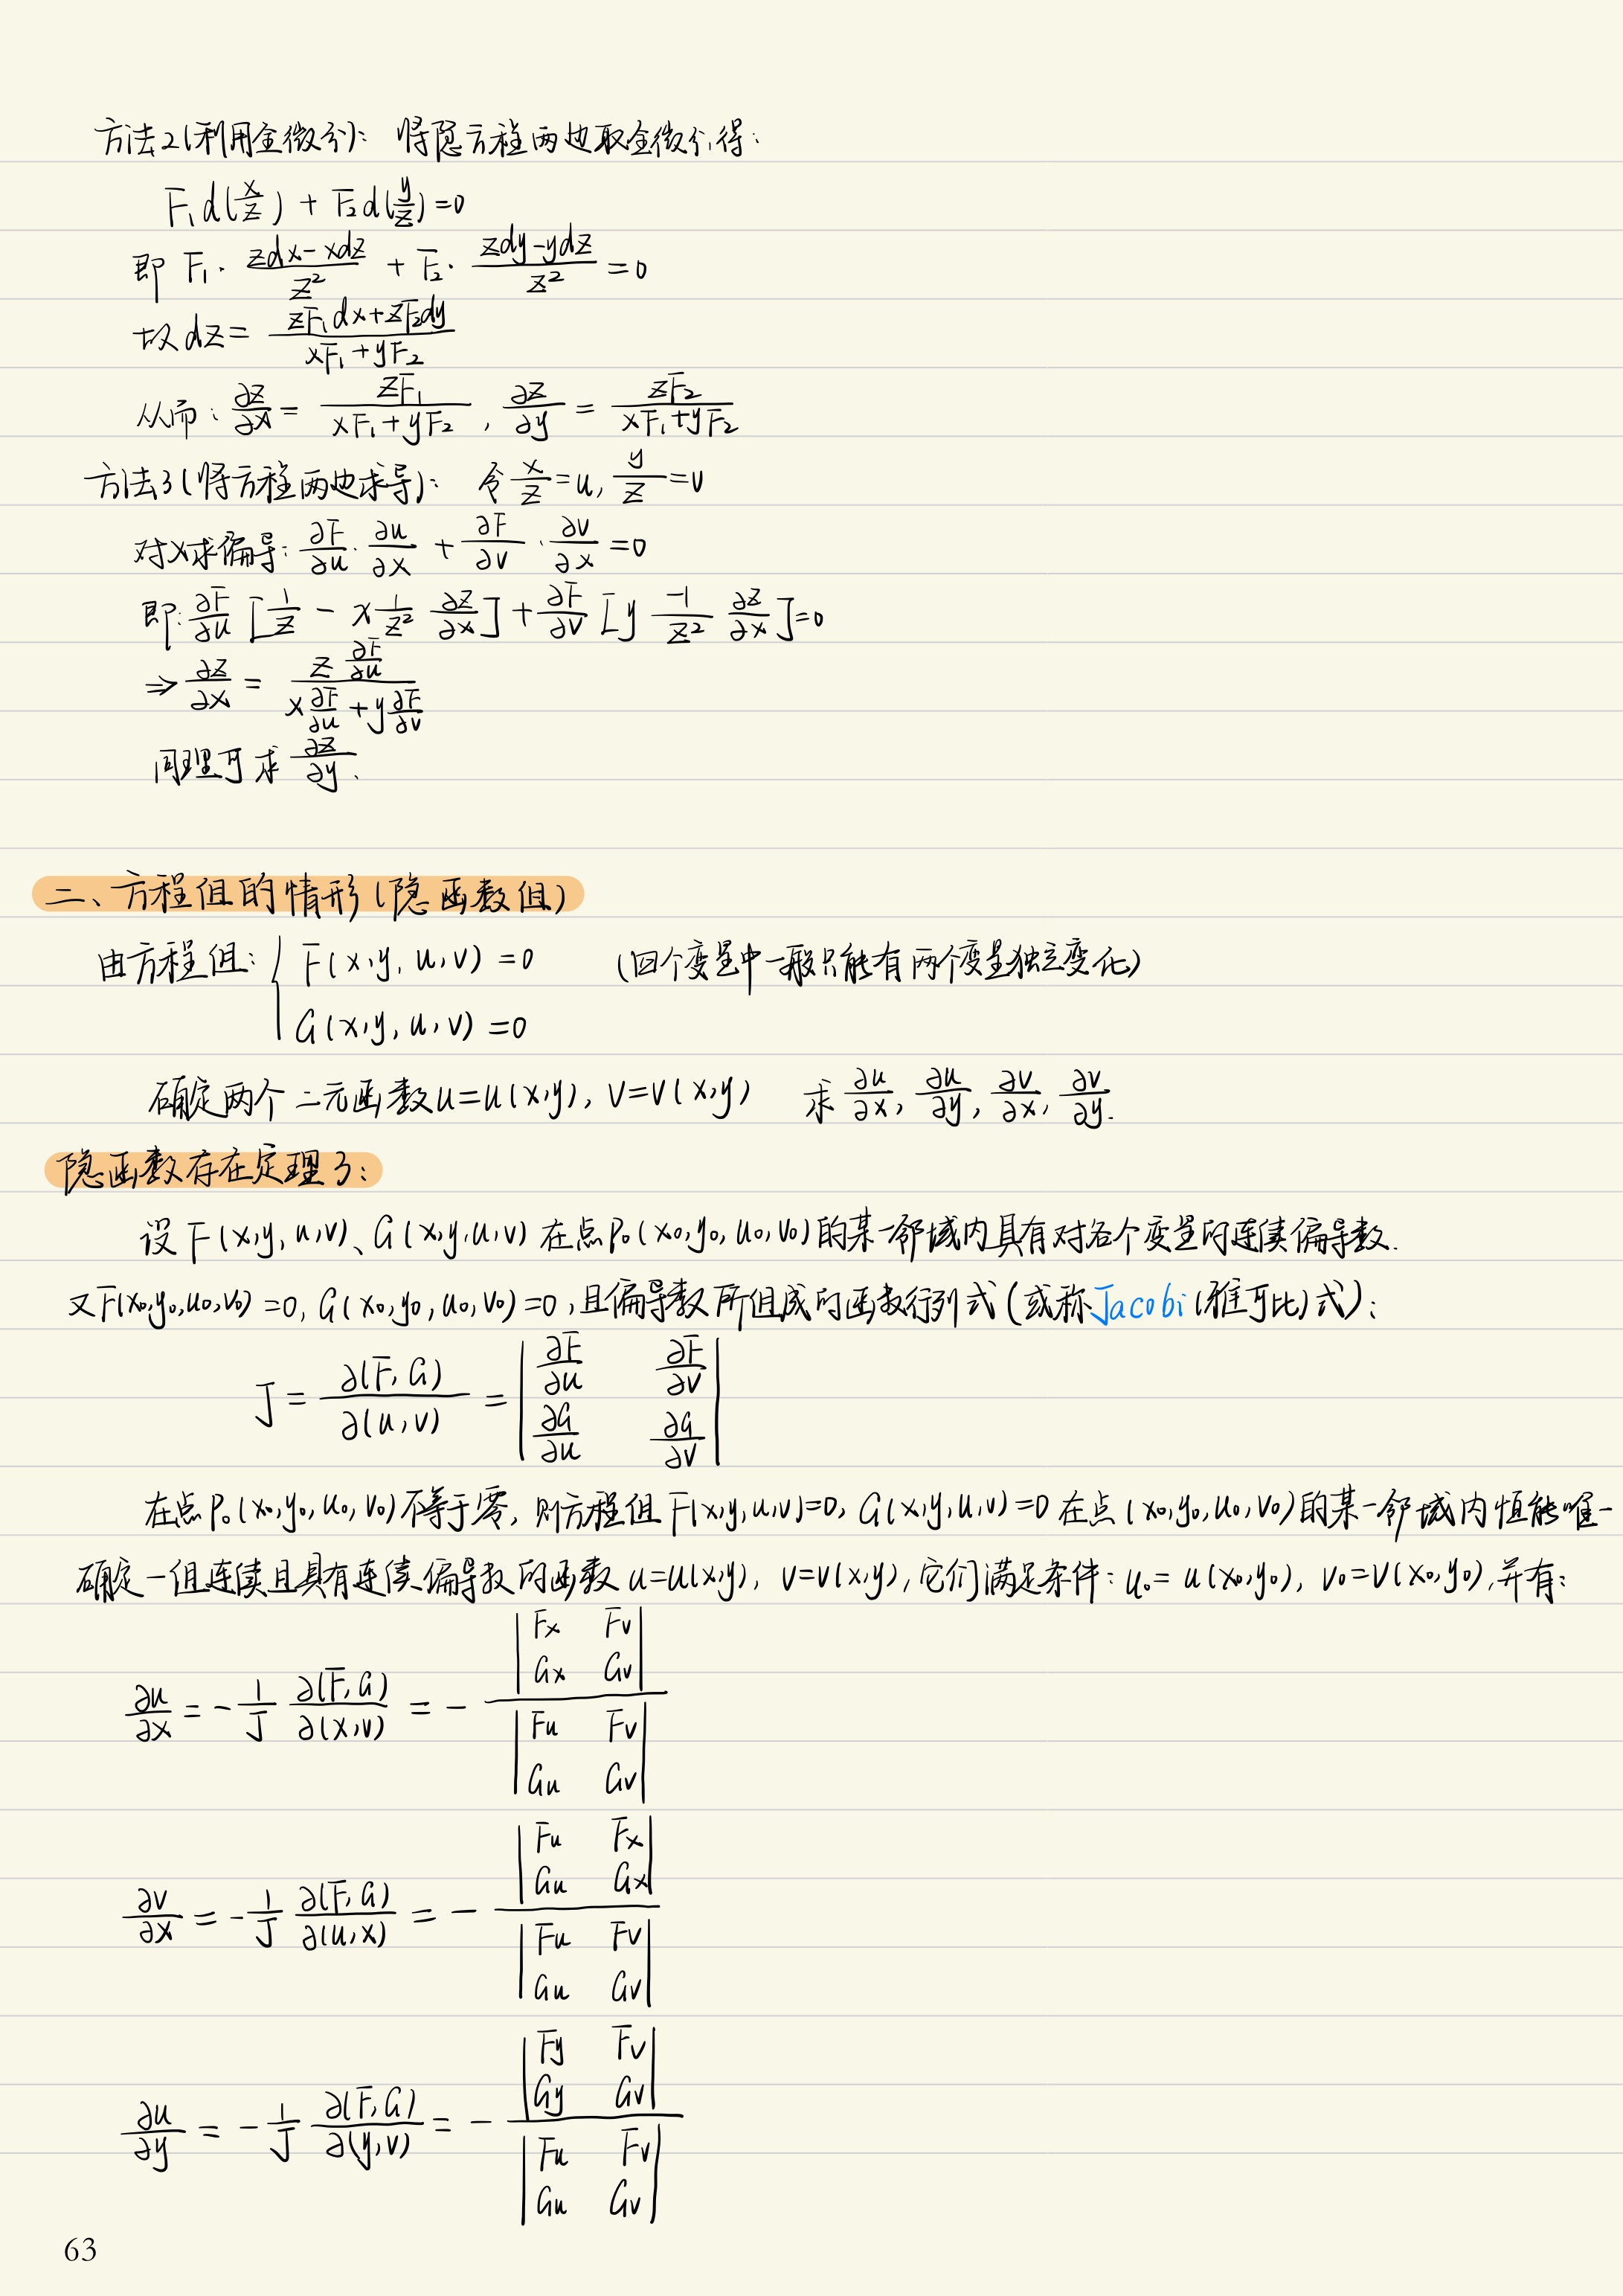 方法2(利用全微分): 将隐方程两边取全微分,得:
F₁d(x/z) + F₂d(y/z) = 0
即 F₁·(zdx-xdz)/z² + F₂·(zdy-ydz)/z² = 0
故dz = (zF₁dx+zF₂dy)/(xF₁+yF₂)
从而: ∂z/∂x = zF₁/(xF₁+yF₂), ∂z/∂y = zF₂/(xF₁+yF₂)
方法3(将方程两边求导): 令 x/z = u, y/z = v
对x求偏导: ∂F/∂u·∂u/∂x + ∂F/∂v·∂v/∂x = 0
即: ∂F/∂u [1/z - x 1/z² ∂z/∂x] + ∂F/∂v [y -1/z² ∂z/∂x] = 0
⇒ ∂z/∂x = (z ∂F/∂u)/(x ∂F/∂u + y ∂F/∂v)
同理可求 ∂z/∂y.
二、方程组的情形(隐函数组)
由方程组: { F(x,y,u,v) = 0 (四个变量中一般只能有两个变量独立变化)
G(x,y,u,v) = 0
确定两个二元函数u=u(x,y), v=v(x,y) 求 ∂u/∂x, ∂u/∂y, ∂v/∂x, ∂v/∂y.
隐函数存在定理3:
设F(x,y,u,v)、G(x,y,u,v)在点P₀(x₀,y₀,u₀,v₀)的某一邻域内具有对各个变量的连续偏导数.
又F(x₀,y₀,u₀,v₀)=0, G(x₀,y₀,u₀,v₀)=0,且偏导数所组成的函数行列式(或称Jacobi(雅可比)式):
J = ∂(F,G)/∂(u,v) = | ∂F/∂u ∂F/∂v |
| ∂G/∂u ∂G/∂v |
在点P₀(x₀,y₀,u₀,v₀)不等于零, 则方程组F(x,y,u,v)=0, G(x,y,u,v)=0在点(x₀,y₀,u₀,v₀)的某一邻域内恒能唯一
确定一组连续且具有连续偏导数的函数u=u(x,y), v=v(x,y),它们满足条件: u₀=u(x₀,y₀), v₀=v(x₀,y₀),并有:
∂u/∂x = -1/J ∂(F,G)/∂(x,v) = - | Fx Fv |
| Gx Gv |
| Fu Fv |
| Gu Gv |
∂v/∂x = -1/J ∂(F,G)/∂(u,x) = - | Fu Fx |
| Gu Gx |
| Fu Fv |
| Gu Gv |
∂u/∂y = -1/J ∂(F,G)/∂(y,v) = - | Fy Fv |
| Gy Gv |
| Fu Fv |
| Gu Gv |
63